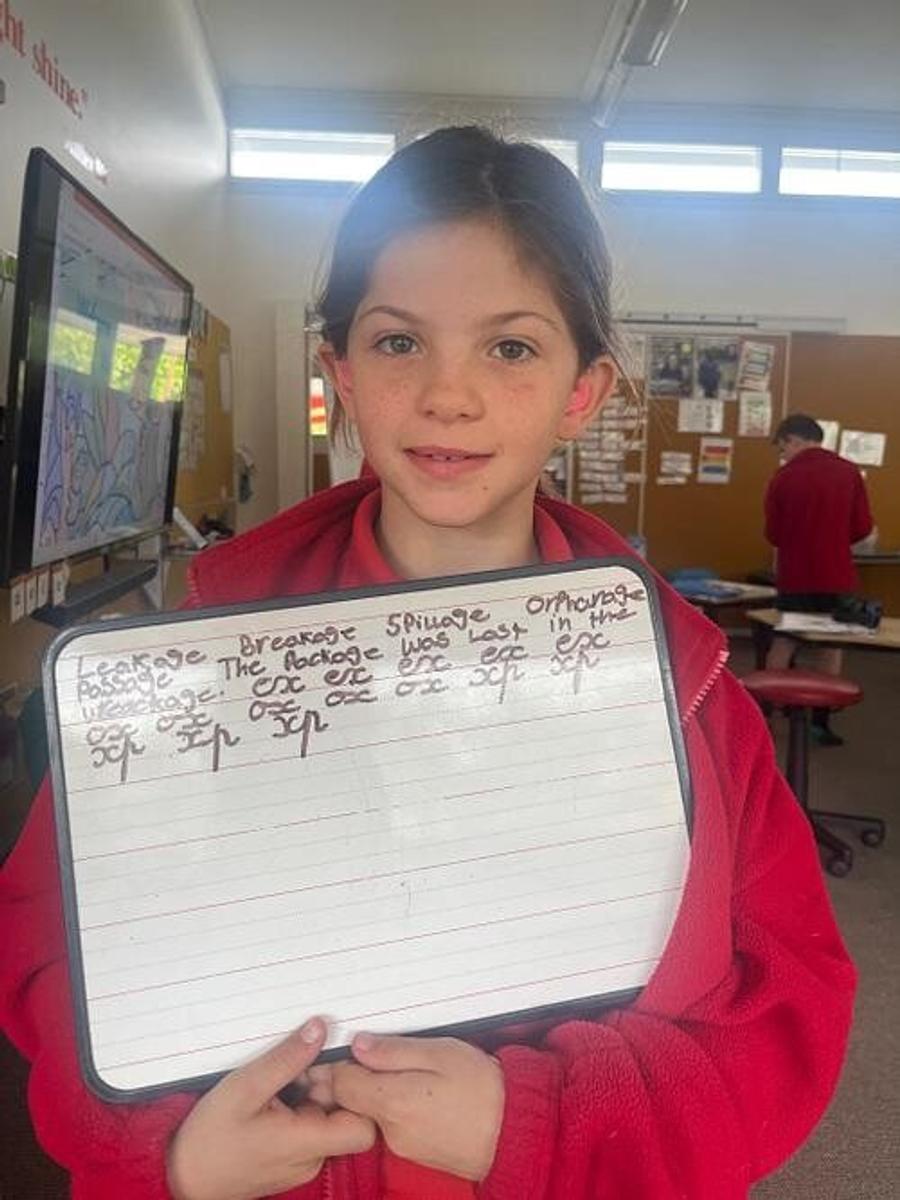 ght shine."
Leakage Breakage Spillage Orphanage
Passage The Package was Last in the
wreackage. ex ex ex ex ex
ox ox ox ox ox xp xp
xp xp xp